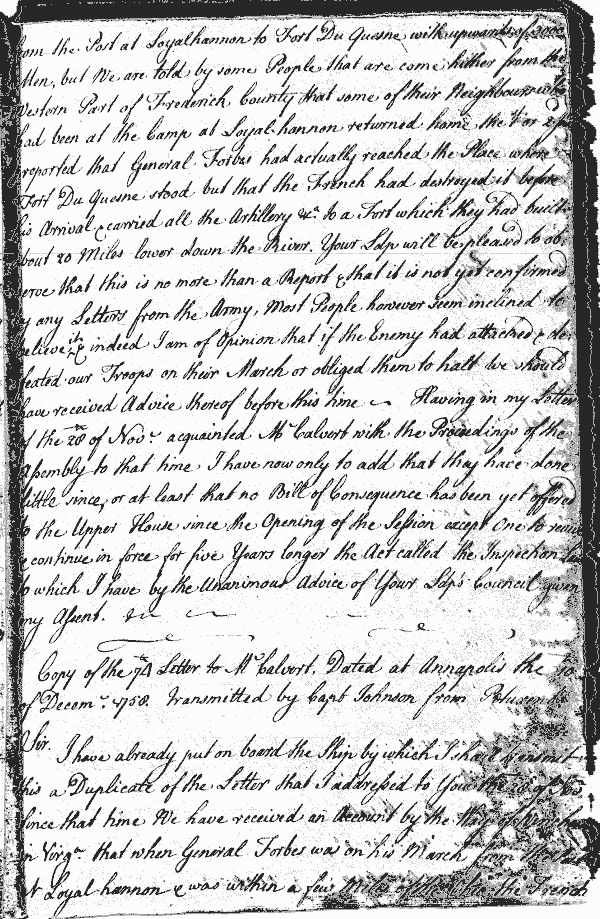 om the Post at Loyalhannon to Fort Du Quesne with upwards of
Men, but We are told by some People that are come hither from the
Western Part of Frederick County that some of their Neighbours who
had been at the Camp at Loyal-hannon returned home the
reported that General Forbes had actually reached the Place where
Fort Du Quesne stood but that the French had destroyed it before
his Arrival & carried all the Artillery &ca. to a Fort which they had built
bout 20 Miles lower down the River. Your Ldp will be pleased to ob
serve that this is no more than a Report & that it is not yet confirmed
by any Letters from the Army, Most People however seem inclined to
believe it & indeed I am of Opinion that if the Enemy had attacked & de
feated our Troops on their March or obliged them to halt We should
have received Advice thereof before this time ~ Having in my Letter
of the 28th of Novr. acquainted Mr Calvert with the Proceedings of the
Assembly to that time I have now only to add that they have done
little since, or at least that no Bill of Consequence has been yet offered
to the Upper House since the Opening of the Session except One to
& continue in force for five Years longer the Act called the Inspection
to which I have by the Unanimous Advice of Your Ldp's Council given
my Assent.
Copy of the Letter to Mr Calvert. Dated at Annapolis the
of Decemr. 1758. Transmitted by Capt Johnson from
Sir.
I have already put on board the Ship by which I shall
this a Duplicate of the Letter that I addressed to You the 28 of
Since that time We have received an Account by the Way of
in Virga. that when General Forbes was on his March from the
at Loyal hannon & was within a few Miles of the the French